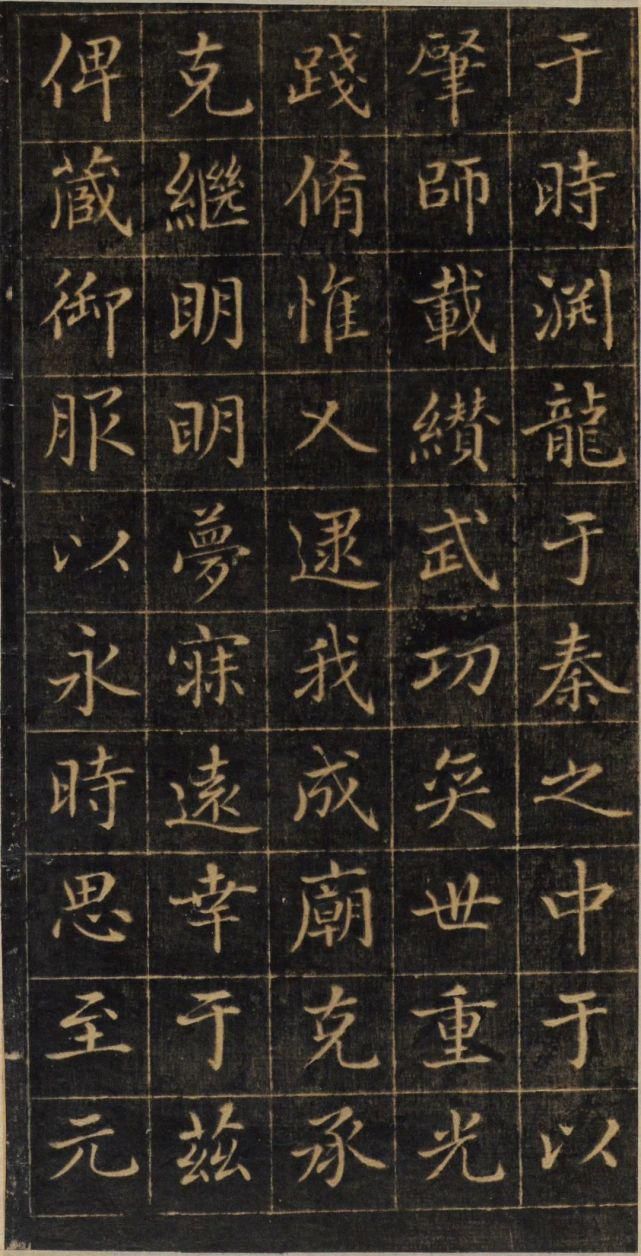 于時渊龍于秦之中于以
肈師載纉武功奕世重光
踐脩惟乂逮我成廟克承
克繼明明夢寐遠幸于茲
俾蔵御服以永時思至元